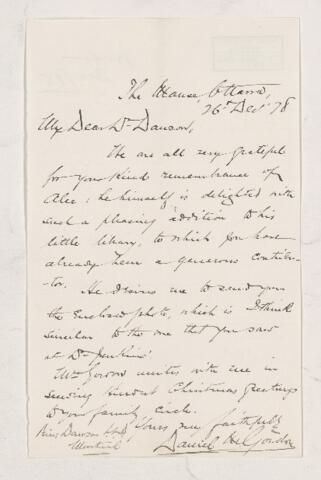 The Manse, Ottawa,
26th Decr 78
My Dear Dr Dawson,
We are all very grateful
for your kind remembrance of
Alec: he himself is delighted with
such a pleasing addition to his
little library, to which you have
already been a generous contribu-
-tor. He desires me to send you
the enclosed photo, which is I think
similar to the one that you saw
at Dr Jenkins'.
Mrs Gordon unites with me in
sending kindest Christmas greetings
to your family circle.
Yours very faithfully
Daniel M. Gordon
Dawson LL.D
Montreal